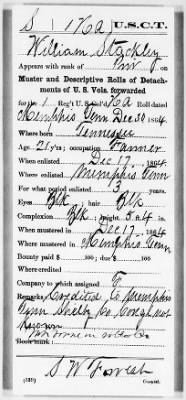 S | 1 H.A. | U.S.C.T.
William Stackley
Appears with rank of Pvt on
Muster and Descriptive Rolls of Detach-
ments of U. S. Vols. forwarded
for the 1 Reg't U.S. Col'd H.A. Roll dated
Memphis Tenn Dec 30, 1864.
Where born Tennessee
Age 21 y'rs; occupation Farmer
When enlisted Dec 17, 1864.
Where enlisted Memphis Tenn
For what period enlisted 3 years.
Eyes Blk; hair Blk
Complexion Blk; height 5 ft. 4 in.
When mustered in Dec 17, 1864.
Where mustered in Memphis Tenn
Bounty paid $ 100; due $ 100
Where credited
Company to which assigned F
Remarks: Credited to Memphis
Tenn Shelby Co. Cong. not
known
Book mark:
(339) Copyist.